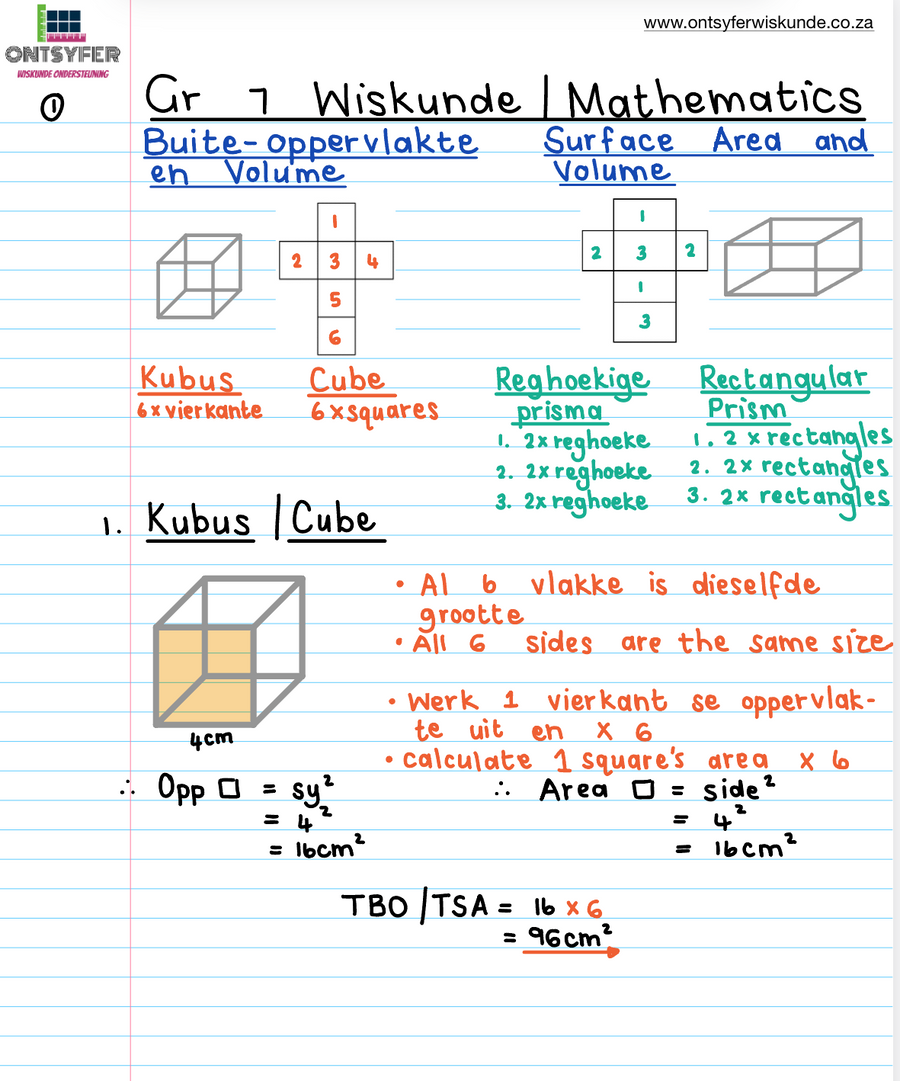 www.ontsyferwiskunde.co.za
ONTSYFER
WISKUNDE ONDERSTEUNING
①
Gr 7 Wiskunde | Mathematics
Buite-oppervlakte
en Volume
Surface Area and
Volume
1
2 3 4
5
6
1
2 3 2
1
3
Kubus
6 x vierkante
Cube
6 x squares
Reghoekige
prisma
1. 2x reghoeke
2. 2x reghoeke
3. 2x reghoeke
Rectangular
Prism
1. 2 x rectangles
2. 2x rectangles
3. 2x rectangles
1. Kubus | Cube
• Al 6 vlakke is dieselfde
grootte
• All 6 sides are the same size
• Werk 1 vierkant se oppervlak-
te uit en x 6
• calculate 1 square's area x 6
4cm
∴ Opp □ = sy²
= 4²
= 16cm²
∴ Area □ = side²
= 4²
= 16cm²
TBO / TSA = 16 x 6
= 96cm²